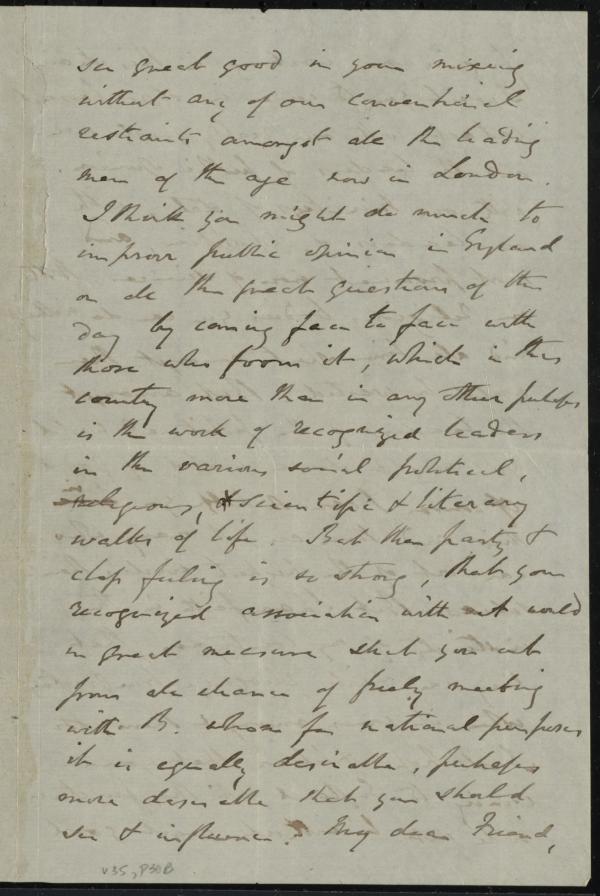 see great good in your mixing
without any of our conventional
restraints amongst all the leading
men of the age now in London.
I think you might do much to
improve public opinion in England
on all the great questions of the
day by coming face to face with
those who form it, which in this
country more than in any other perhaps
is the work of recognized leaders
in the various social political,
religious, & scientific & literary
walks of life. But then party &
class feeling is so strong, that your
recognized association with A would
in great measure shut you out
from all chance of freely meeting
with B. whom for national purposes
it is equally desirable, perhaps
more desirable that you should
see & influence. My dear Friend,
V35, P30B